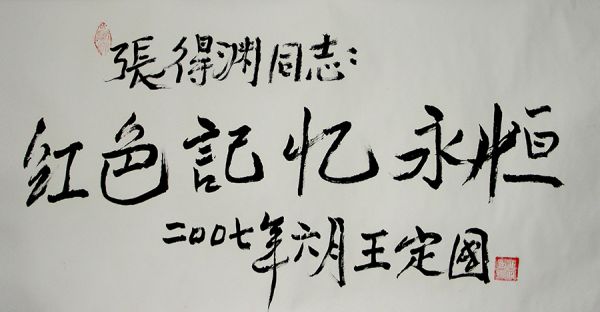 張得渊同志:
红色記忆永恒
二〇〇七年六月王定國